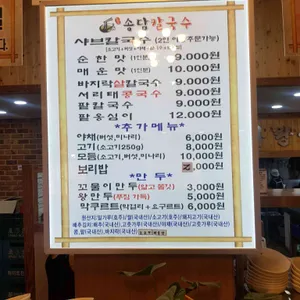 송담칼국수
샤브칼국수
순한맛 (1인분) 9.000원
매운맛 (1인분) 10.000원
바지락살칼국수 9.000원
서리태콩국수 9.000원
팥칼국수 9.000원
팥옹심이 12.000원
*추가메뉴*
야채(버섯,미나리) 6,000원
고기(소고기250g) 8,000원
모듬(소고기,버섯,미나리) 10,000원
보리밥 2,000원
*만두*
꼬물이만두 3,000원
왕만두 5,000원
막쿠르트(막걸리+요구르트) 6,000원